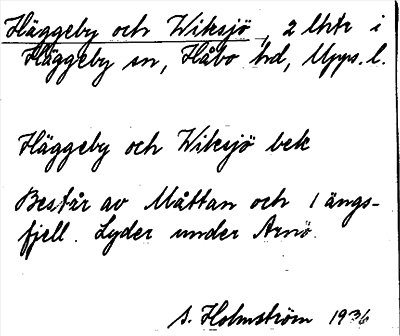 Häggeby och Wiksjö, 2 lhtr i
Häggeby sn, Håbo hd, Upps. l.
Häggeby och Wiksjö bek
Består av Måttan och 1 ängs-
fjell. Lyder under Arnö.
S. Holmström 1936